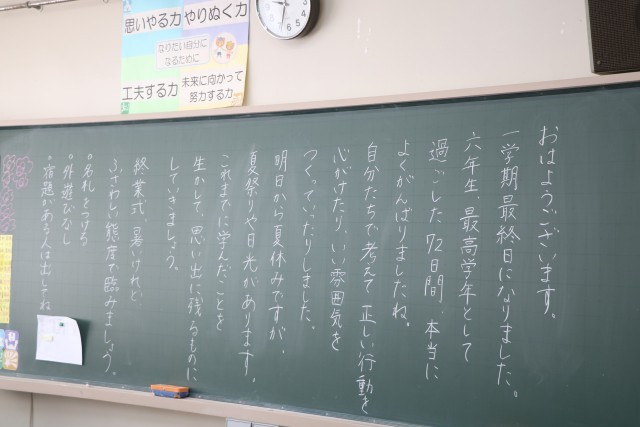 思いやる力
やりぬく力
なりたい自分に
なるために
工夫する力
未来に向かって
努力する力
おはようございます。
一学期最終日になりました。
六年生、最高学年として
過ごした72日間、本当に
よくがんばりましたね。
自分たちで考えて正しい行動を
心がけたり、いい雰囲気を
つくっていったりしました。
明日から夏休みですが、
夏祭りや日光があります。
これまでに学んだことを
生かして、思い出に残るものに
していきましょう。
終業式、暑いけれど
ふさわしい態度で臨みましょう。
・名札をつける
・外遊びなし
・宿題がある人は出してね